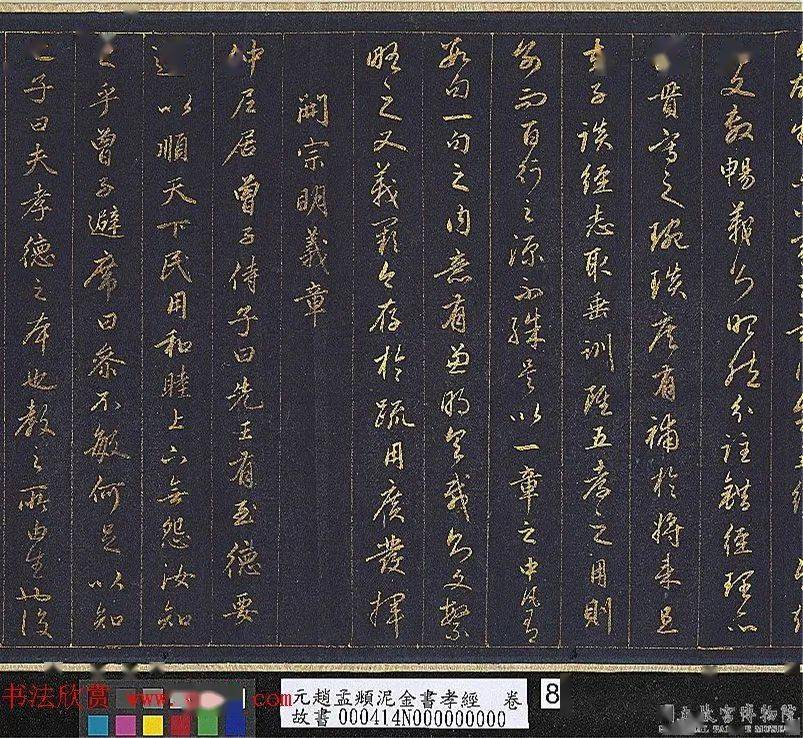 文敷暢義則昭然分註錯經理亦
貫寫之琬琰庶有補於將來且
夫子談經志取垂訓雖五孝之用則
別而百行之源不殊是以一章之中凡有
數句一句之內意有兼明具載則文繁
略之又義闕今存於疏用廣發揮
開宗明義章
仲尼居曾子侍子曰先王有至德要
道以順天下民用和睦上下無怨汝知
之乎曾子避席曰參不敏何足以知
之子曰夫孝德之本也教之所由生也復
书法欣赏 www. .com
元趙孟頫泥金書孝經 卷
故書 000414N000000000
8
國立故宮博物院